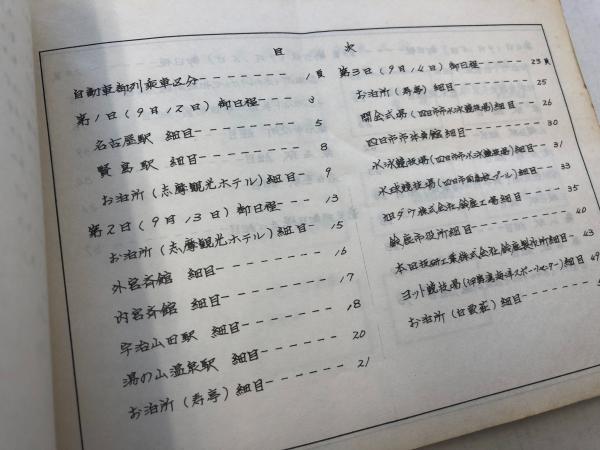 目次
自動車御列乗車区分 1頁
第1日(9月12日)御日程 3
名古屋駅 細目 5
賢島駅 細目 8
お泊所(志摩観光ホテル)細目 9
第2日(9月13日)御日程 13
お泊所(志摩観光ホテル)細目 15
外宮斎館 細目 16
内宮斎館 細目 17
宇治山田駅 細目 18
湯の山温泉駅 細目 20
お泊所(寿亭)細目 21
第3日(9月14日)御日程 23頁
お泊所(寿亭)細目 25
開会式場(四日市市水泳競技場)細目 26
四日市市体育館細目 30
水泳競技場(四日市市水泳競技場)細目 31
水球競技場(四日市市プール)細目 33
旭ダウ株式会社鈴鹿工場細目 35
鈴鹿市役所細目 40
本田技研工業株式会社鈴鹿製作所細目 43
ヨット競技場(伊勢湾海洋スポーツセンター)細目 49
お泊所(白雲荘)細目